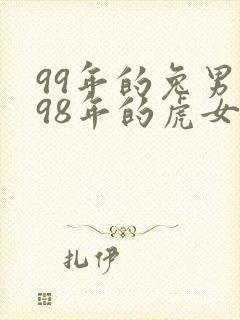 99年的兔男
98年的虎女
扎伊